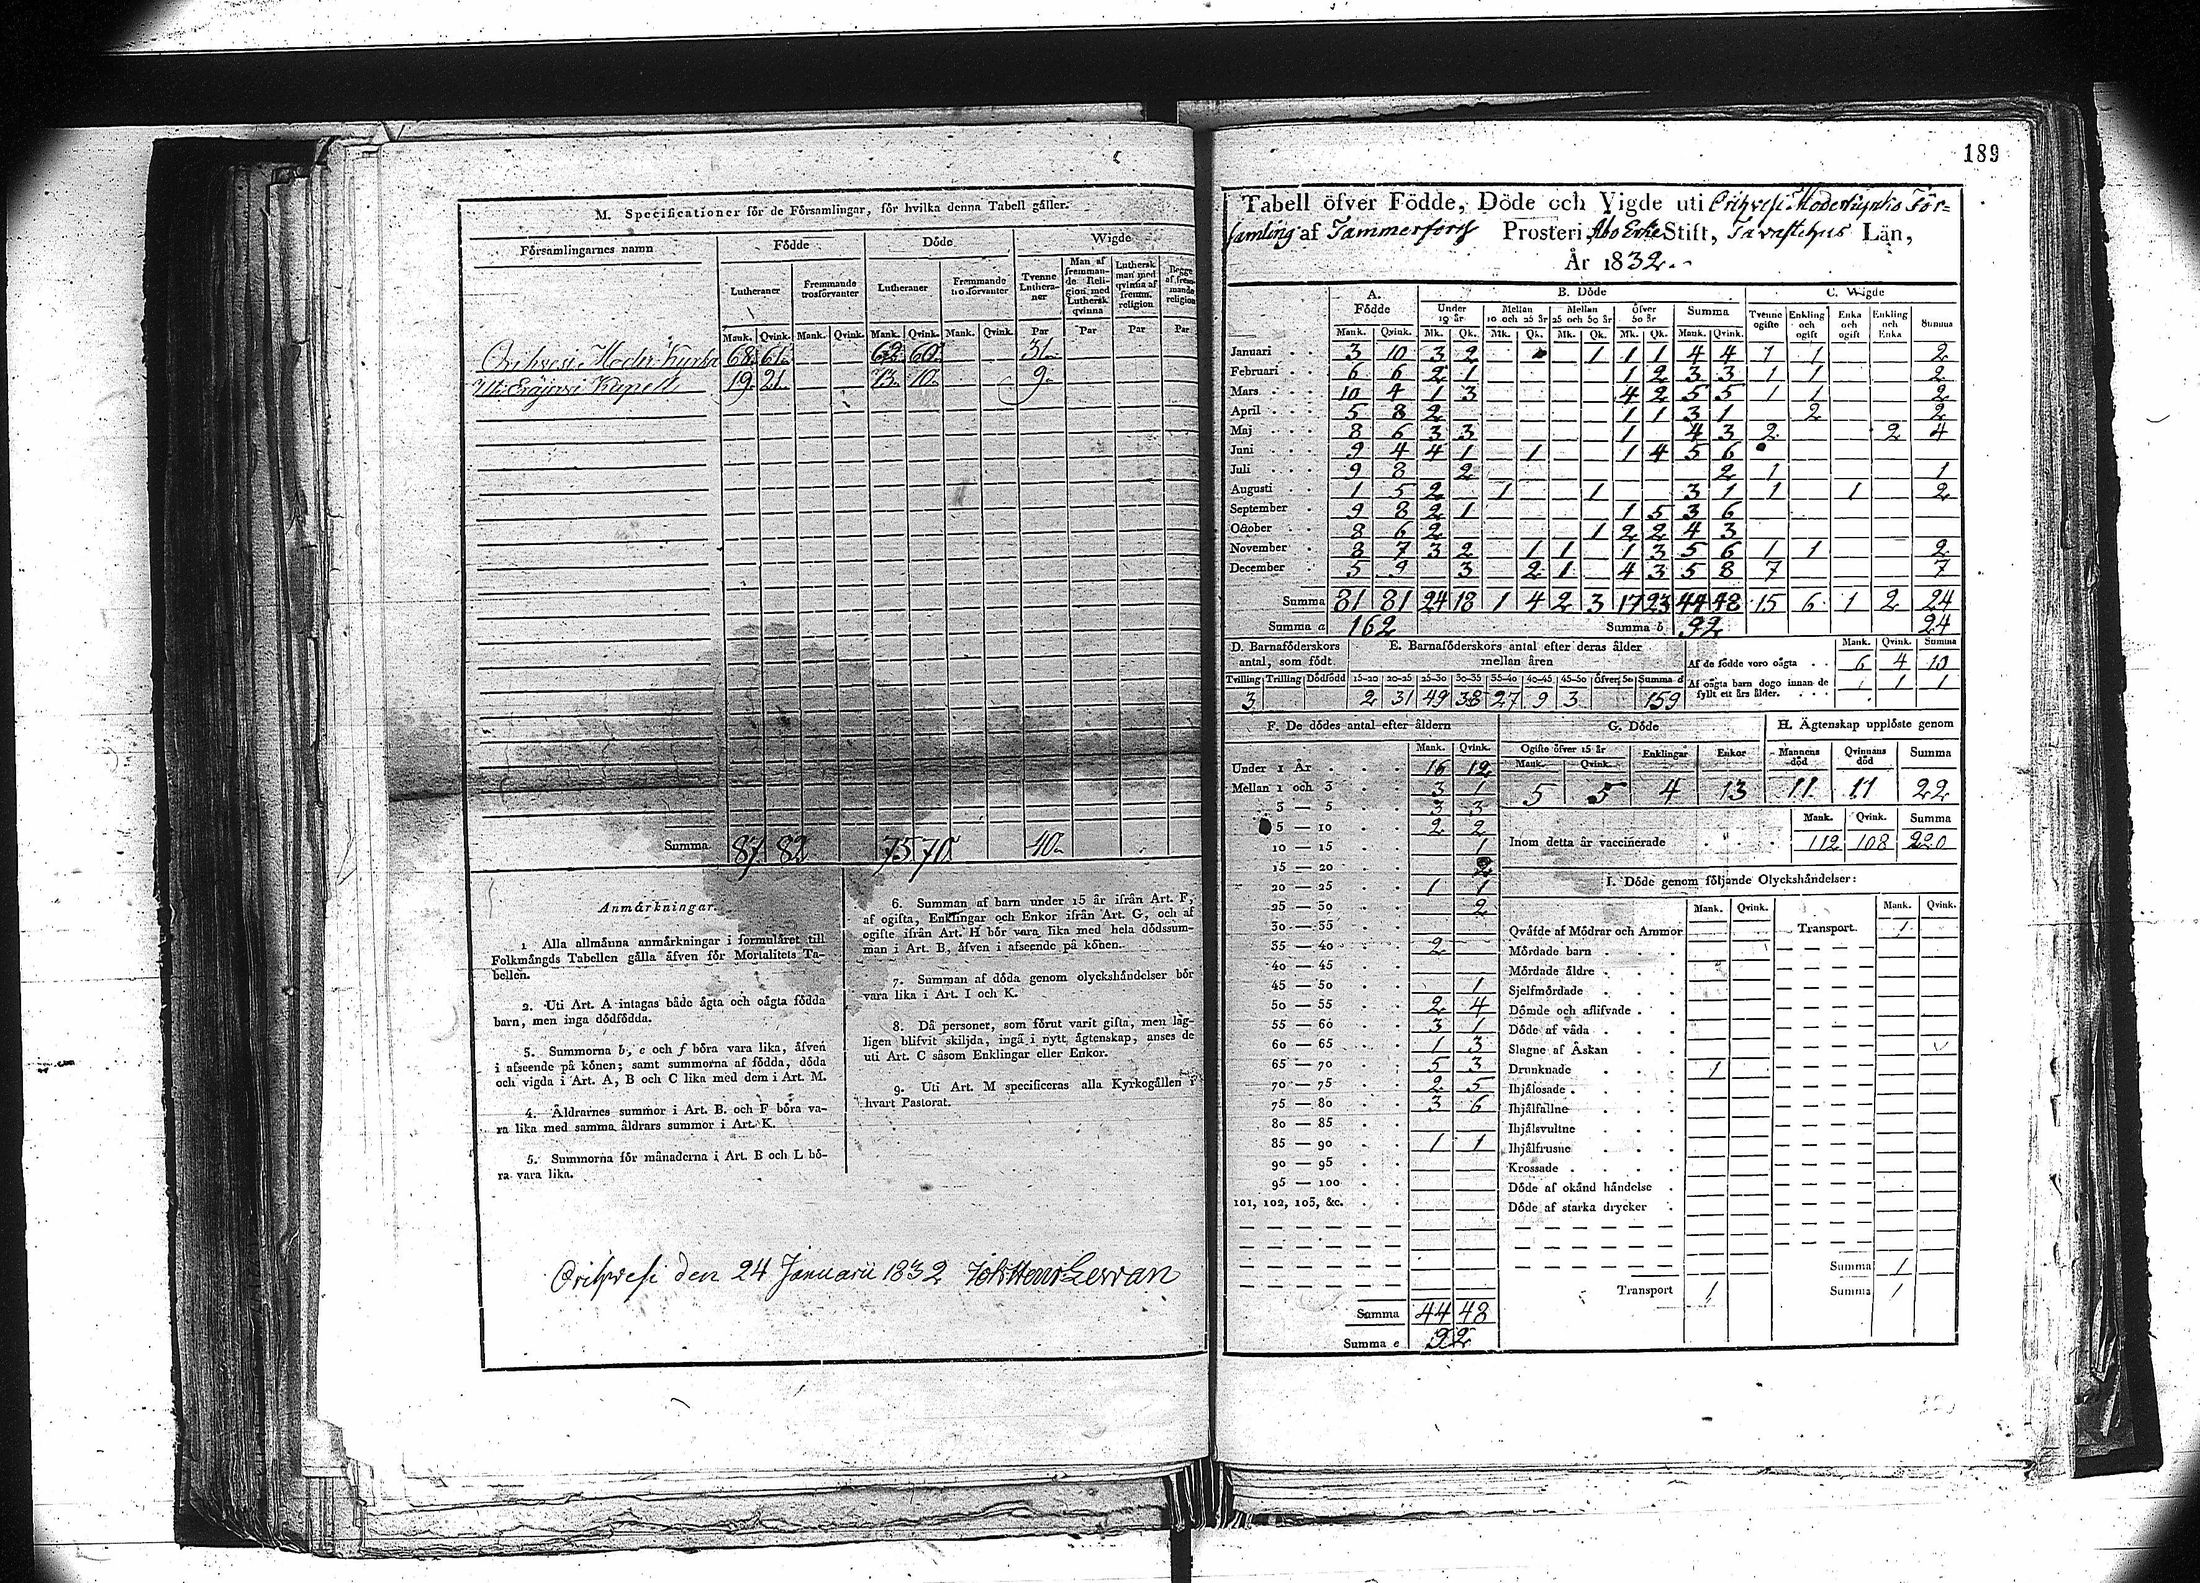 M. Specificationer för de Församlingar, för hvilka denna Tabell gäller.
Församlingarnes namn Födde Döde Wigde
Lutheraner Fremmande trosförvanter Lutheraner Fremmande trosförvanter Tvenne Lutheraner Man af fremmande Religion med Luthersk qvinna Luthersk man med qvinna af fremm. religion Begge af fremmande religion
Mank. Qvink. Mank. Qvink. Mank. Qvink. Mank. Qvink. Par Par Par Par
Orihvesi Moder Kyrka 68. 61. 62. 60. 31.
Kapell 19. 21. 13. 10. 9.
Summa 87. 82 75 70. 40.
Anmärkningar.
1 Alla allmänna anmärkningar i formuläret till
Folkmängds Tabellen gälla äfven för Mortalitets Ta-
bellen.
2. Uti Art. A intagas både ägta och oägta födda
barn, men inga dödfödda.
3. Summorna b, e och f böra vara lika, äfven
i afseende på könen; samt summorna af födda, döda
och vigda i Art. A, B och C lika med dem i Art. M.
4. Åldrarnes summor i Art. B. och F böra va-
ra lika med samma åldrars summor i Art. K.
5. Summorna för månaderna i Art. B och L bö-
ra vara lika.
6. Summan af barn under 15 år ifrån Art. F,
af ogifta, Enklingar och Enkor ifrån Art. G, och af
ogifte ifrån Art. H bör vara lika med hela dödssum-
man i Art. B, äfven i afseende på könen.
7. Summan af döda genom olyckshändelser bör
vara lika i Art. I och K.
8. Då personer, som förut varit gifta, men lag-
ligen blifvit skiljda, ingå i nytt ägtenskap, anses de
uti Art. C såsom Enklingar eller Enkor.
9. Uti Art. M specificeras alla Kyrkogällen i
hvart Pastorat.
Orihvesi den 24 Januarii 1832
189
Tabell öfver Födde, Döde och Vigde uti Orihvesi Moderkyrko För-
samling af Tammerfors Prosteri, Åbo Erke Stift, Tavastehus Län,
År 1832.
A. Födde B. Döde C. Wigde
Under 10 år Mellan 10 och 25 år Mellan 25 och 50 år Öfver 50 år Summa Tvenne ogifte Enkling och ogift Enka och ogift Enkling och Enka Summa
Mank. Qvink. Mk. Qk. Mk. Qk. Mk. Qk. Mk. Qk. Mank. Qvink.
Januari 3 10 3 2 1 1 1 4 4 1 1 2
Februari 6 6 2 1 1 2 3 3 1 1 2
Mars 10 4 1 3 4 2 5 5 1 1 2
April 5 8 2 1 1 3 1 2 2
Maj 8 6 3 3 1 4 3 2 2 4
Juni 9 4 4 1 1 1 4 5 6
Juli 9 8 2 2 1 1
Augusti 1 5 2 1 1 3 1 1 1 2
September 9 8 2 1 1 5 3 6
October 8 6 2 1 2 2 4 3
November 8 7 3 2 1 1 1 3 5 6 1 1 2
December 5 9 3 2 1 4 3 5 8 7 7
Summa 81 81 24 18 1 4 2 3 17 23 44 48 15 6 1 2 24
Summa a 162 Summa b 92 24
D. Barnaföderskors antal, som födt E. Barnaföderskors antal efter deras ålder mellan åren Mank. Qvink. Summa
Af de födde voro oägta 6 4 10
Tvilling Trilling Dödfödd 15-20 20-25 25-30 30-35 35-40 40-45 45-50 Öfver 50 Summa d
Af oägta barn dogo innan de fyllt ett års ålder. 1 1
3 2 31 49 38 27 9 3 159
F. De dödes antal efter åldern G. Döde H. Ägtenskap upplöste genom
Mank. Qvink. Ogifte öfver 15 år Enklingar Enkor Mannens död Qvinnans död Summa
Mank. Qvink.
5 5 4 13 11 11 22
Under 1 År 16 12
Mellan 1 och 3 3 1
3 — 5 3 3
5 — 10 2 2
10 — 15 1
15 — 20 2
20 — 25 1 1
25 — 30 2
30 — 35
35 — 40 2
40 — 45
45 — 50 1
50 — 55 2 4
55 — 60 3 1
60 — 65 1 3
65 — 70 5 3
70 — 75 2 5
75 — 80 3 6
80 — 85
85 — 90 1 1
90 — 95
95 — 100
101, 102, 103, &c.
Summa 44 48
Summa e 92
Mank. Qvink. Summa
Inom detta år vaccinerade 112 108 220
I. Döde genom följande Olyckshändelser:
Mank. Qvink. Mank. Qvink.
Qväfde af Mödrar och Ammor Transport 1
Mördade barn
Mördade äldre
Sjelfmördade
Dömde och aflifvade
Döde af våda
Slagne af Åskan
Drunknade 1
Ihjälosade
Ihjälfallne
Ihjälsvultne
Ihjälfrusne
Krossade
Döde af okänd händelse
Döde af starka drycker
Summa 1
Transport 1 Summa 1